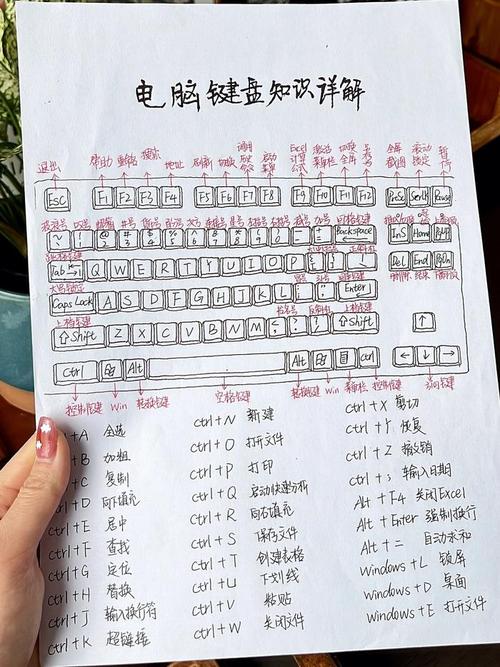 电脑键盘知识详解
退出 帮助 重命名 搜索 地址 刷新 切换 启动菜单 Excel计算公式 激活菜单栏 切换全屏 另存为 全屏截图 滚动锁定 暂停
ESC F1 F2 F3 F4 F5 F6 F7 F8 F9 F10 F11 F12 PrtSc Scrlk Pause
~ ! @ # $ % ^ & * ( ) _ + Backspace Ins Home PgUp
Tab Q W E R T Y U I O P { } | Del End PgDn
大写锁定
Caps Lock A S D F G H J K L : " Enter
上档键
Shift Z X C V B N M < > ? Shift ↑
Ctrl Alt Alt Ctrl ← ↓ →
控制键 Win 转换键 空格键 转换键 Win 菜单栏 控制键 方向键
+A 全选
+B 加粗
+C 复制
+D 向下填充
ctrl+E 居中
ctrl+F 查找
ctrl+G 定位
ctrl+H 替换
ctrl+J 输入换行符
ctrl+K 超链接
ctrl+N 新建
ctrl+O 打开文件
ctrl+P 打印
ctrl+Q 启动快速分析
ctrl+R 向右填充
ctrl+S 保存文件
ctrl+T 创建表格
ctrl+U 下划线
ctrl+V 粘贴
ctrl+W 关闭文件
ctrl+X 剪切
ctrl+Y 恢复
ctrl+Z 撤销
ctrl+; 输入日期
Alt+F4 关闭Excel
Alt+Enter 强制换行
Alt+= 自动求和
Windows+L 锁屏
Windows+D 桌面
Windows+E 打开文件